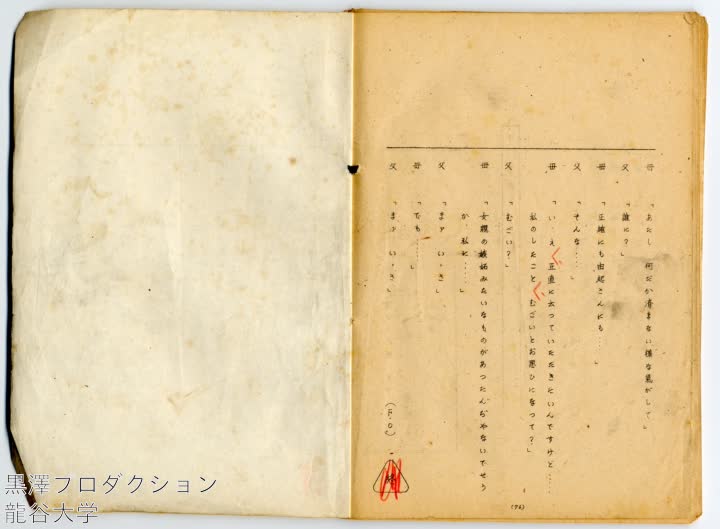 母 「あたし 何だか済まない様な気がして」
父 「誰に?」
母 「正雄にも由起さんにも…」
父 「そんな……」
母 「いゝえ 正直に云つていたゞきたいんですけど……
私のしたこと むごいとお思ひになつて?」
父 「むごい?」
母 「女親の嫉妬みたいなものがあつたんぢやないでせう
か、私に……」
父 「まァ いゝさ」
母 「でも……」
父 「まァ いゝさ」
(F.O)
(76)
黒澤プロダクション
龍谷大学